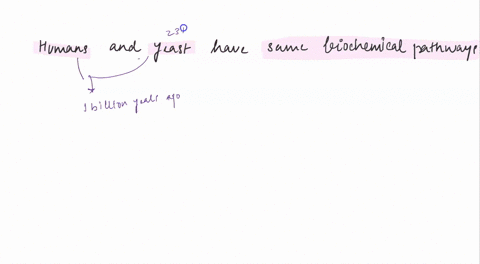 Humans and yeast have same biochemical pathways
1 billion years ago